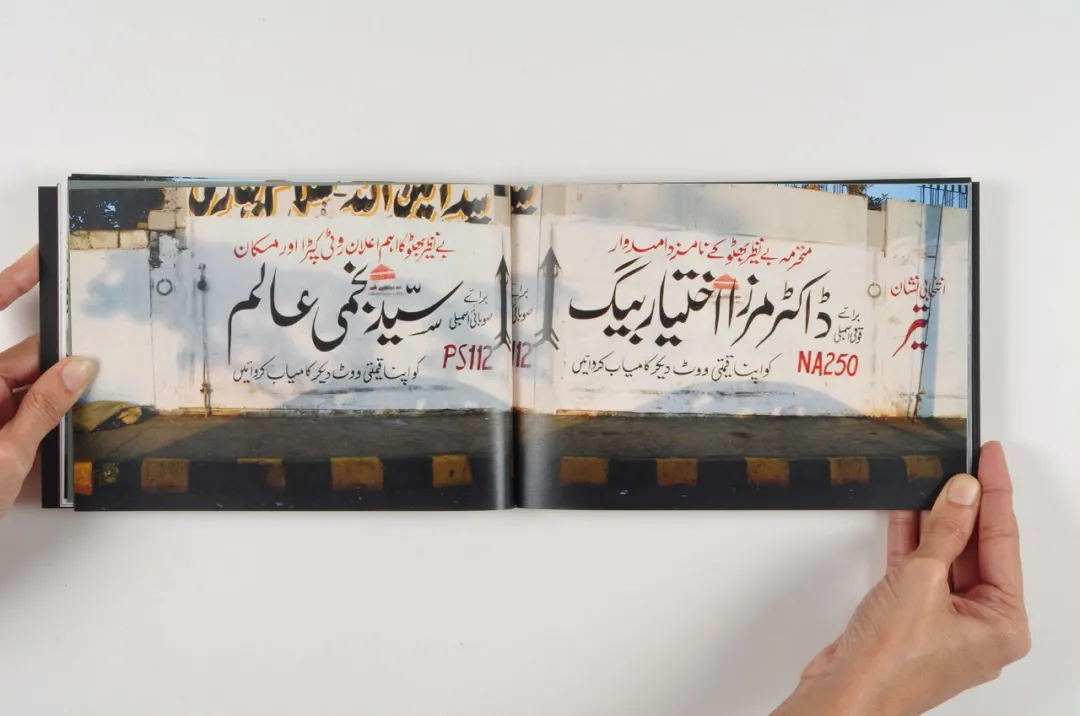 محترمہ بے نظیر بھٹو کے نامزد امیدوار
برائے
قومی اسمبلی
ڈاکٹر مرزا اختیار بیگ
NA250
کو اپنا قیمتی ووٹ دیکر کامیاب کروائیں
انتخابی نشان
تیر
بے نظیر بھٹو کا اہم اعلان روٹی کپڑا اور مکان
برائے
صوبائی اسمبلی
سیّد نجمی عالم
PS112
کو اپنا قیمتی ووٹ دیکر کامیاب کروائیں
برائے
صوبائی اسمبلی
112